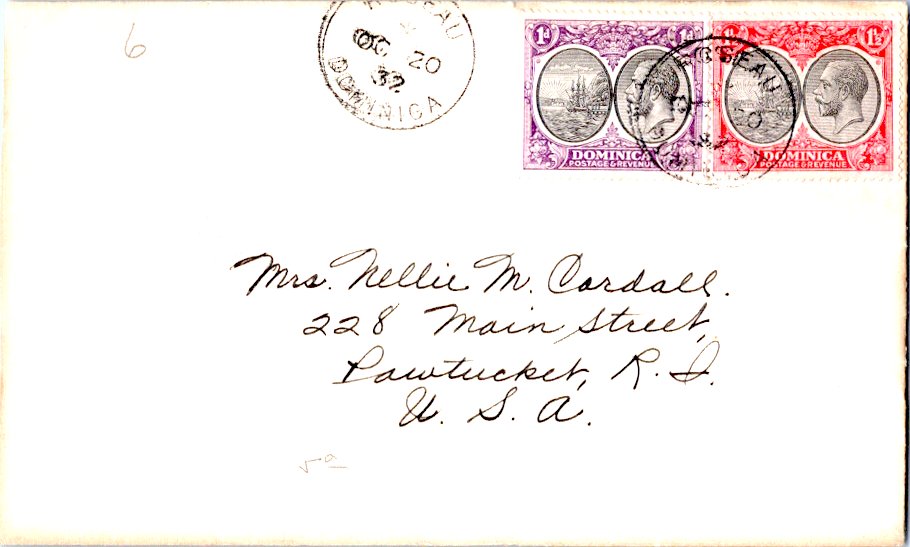 6
ROSEAU
OC 20
32
DOMINICA
1d 1d
DOMINICA
POSTAGE & REVENUE
1½
DOMINICA
POSTAGE & REVENUE
ROSEAU
Mrs. Nellie M. Cardall.
228 Main Street,
Pawtucket, R. I.
U. S. A.